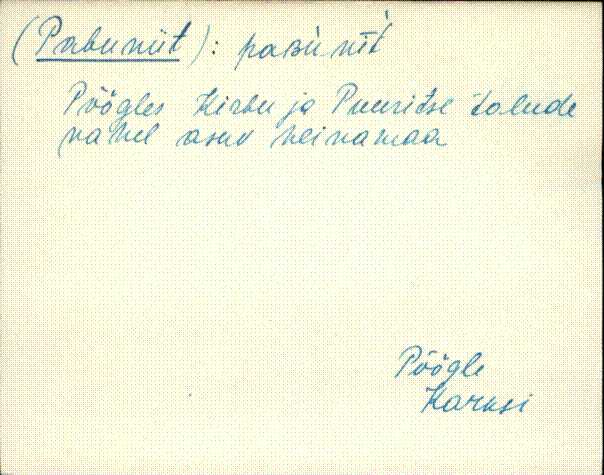 (Pabuniit): paʙùnı̄t̀
Pöögles Kirbu ja Puuritse talude
vahel asuv heinamaa
Pöögle
Karksi